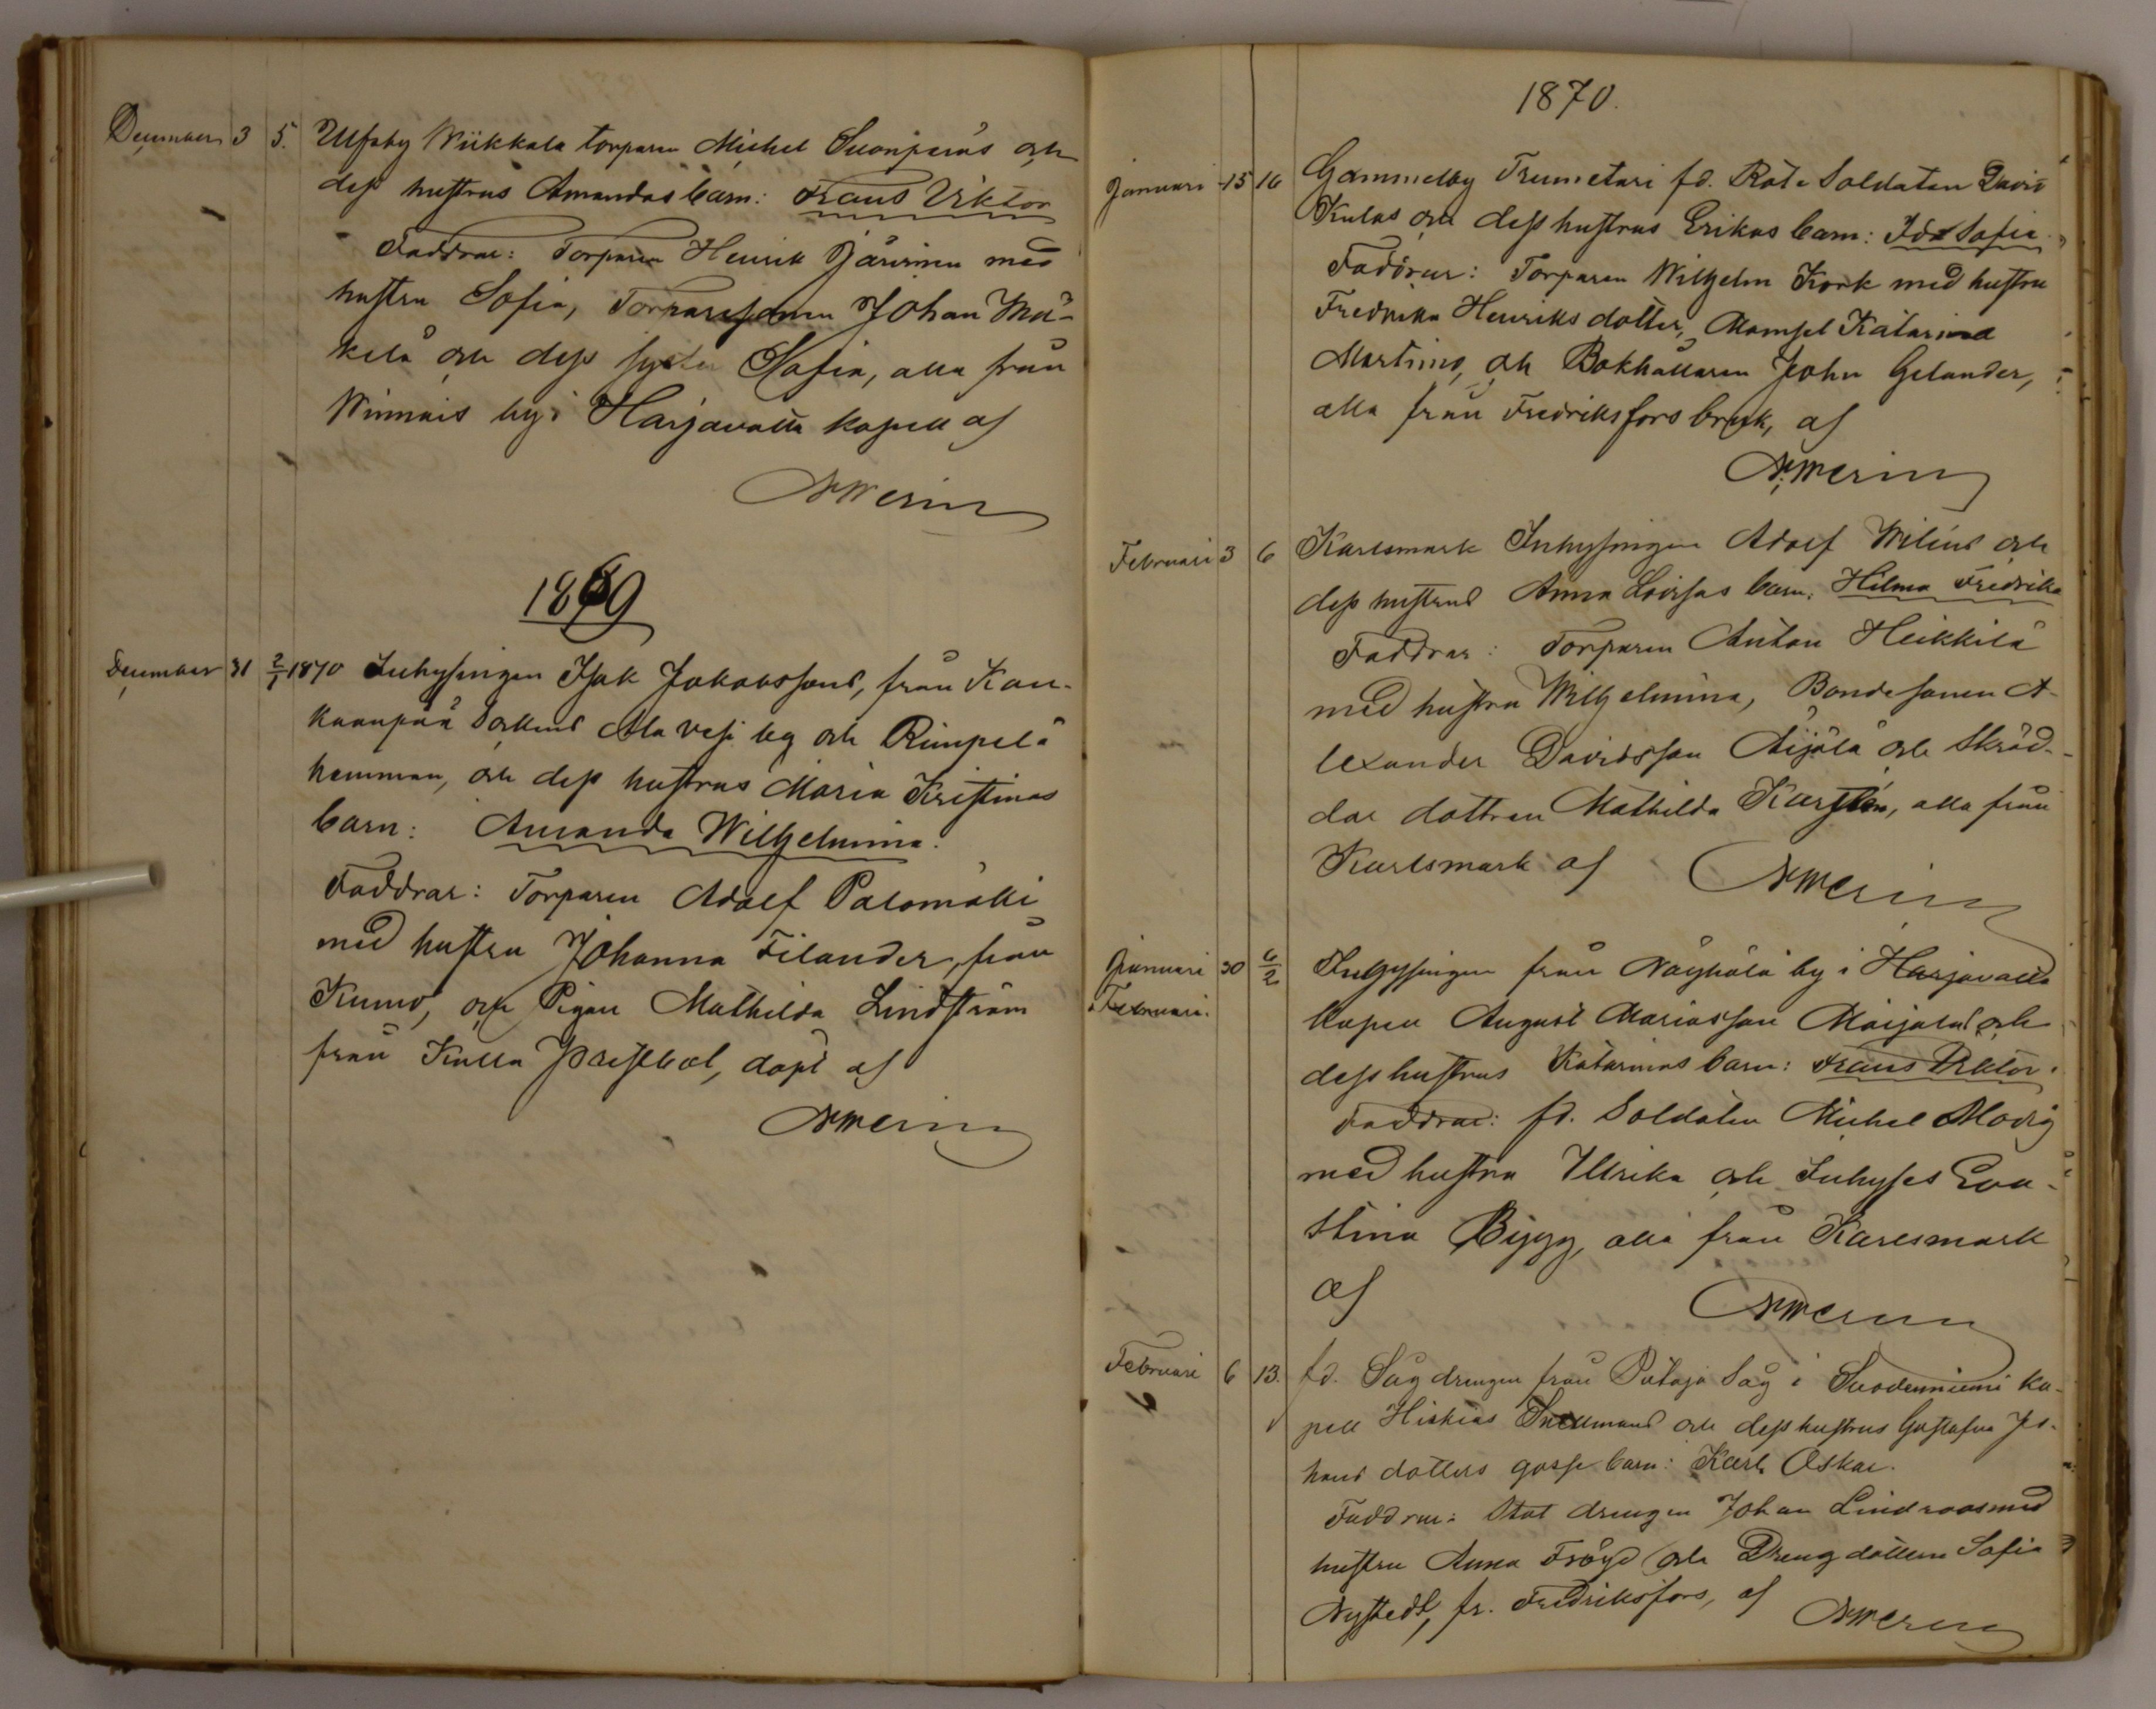 December 3 5. Ulfsby Wiikkala torparen Michel Suonpääs och
dess hustrus Amandas barn: Frans Viktor
Faddrar: Torparen Henrik Järvinen med
hustru Sofia, Torparesonen Johan Mä-
kelä och dess syster Sofia, alla från
Winnais by i Harjavalta kapell af
N Merin
1869
December 31 2/1 1870 Inhysingen Isak Jakobssons, från Kan-
kaanpää Sockens Ala vesi by och Rimpelä
hemman, och dess hustrus Maria Kristinas
barn: Amanda Wilhelmina.
Faddrar: Torparen Adolf Palomäki
med hustru Johanna Filander, från
Kumo, och Pigan Mathilda Lindström
från Kulla prestbol, döpt af
N Merin
1870.
Januari 15 16 Gammelby Trumetari fd. Rote Soldaten David
Kulas och dess hustrus Erikas barn: Ida Sofia.
Faddrar: Torparen Wilhelm Kork med hustru
Fredrika Henriksdotter, Mamsel Katarina
Martimo, och Bokhållaren John Gelander,
alla från Fredriksfors bruk, af
N. Merin
Februari 3 6 Karlsmark Inhysingen Adolf Wiléns och
dess hustrus Anna Lovisas barn: Hilma Fredrika
Faddrar: Torparen Anton Heikkilä
med hustru Wilhelmina, Bondesonen A-
lexander Davidsson Äijälä och Skräd-
dar dottren Mathilda Karstén, alla från
Karlsmark af N Merin
Januari 30 6/2 Inhysingen från Näyhälä by i Harjavalta
Februari. kapell August Mariasson Maijalas och
dess hustrus Katarinas barn: Frans Viktor.
Faddrar: fd. Soldaten Michel Modig
med hustru Ulrika och Inhyses Eva
Stina Bigg, alla från Karlsmark
af N Merin
Februari 6 13. fd. Sågdrengen från Putaja Såg i Suodenniemi ka-
pell Hiskias Snellmans och dess hustrus Gustafva Jo-
hans dotters gosse barn: Karl Oskar.
Faddrar: Stat drengen Johan Lindroos med
hustru Anna Fröyd och Drengdottern Sofia
Nystedt, fr. Fredriksfors, af N Merin